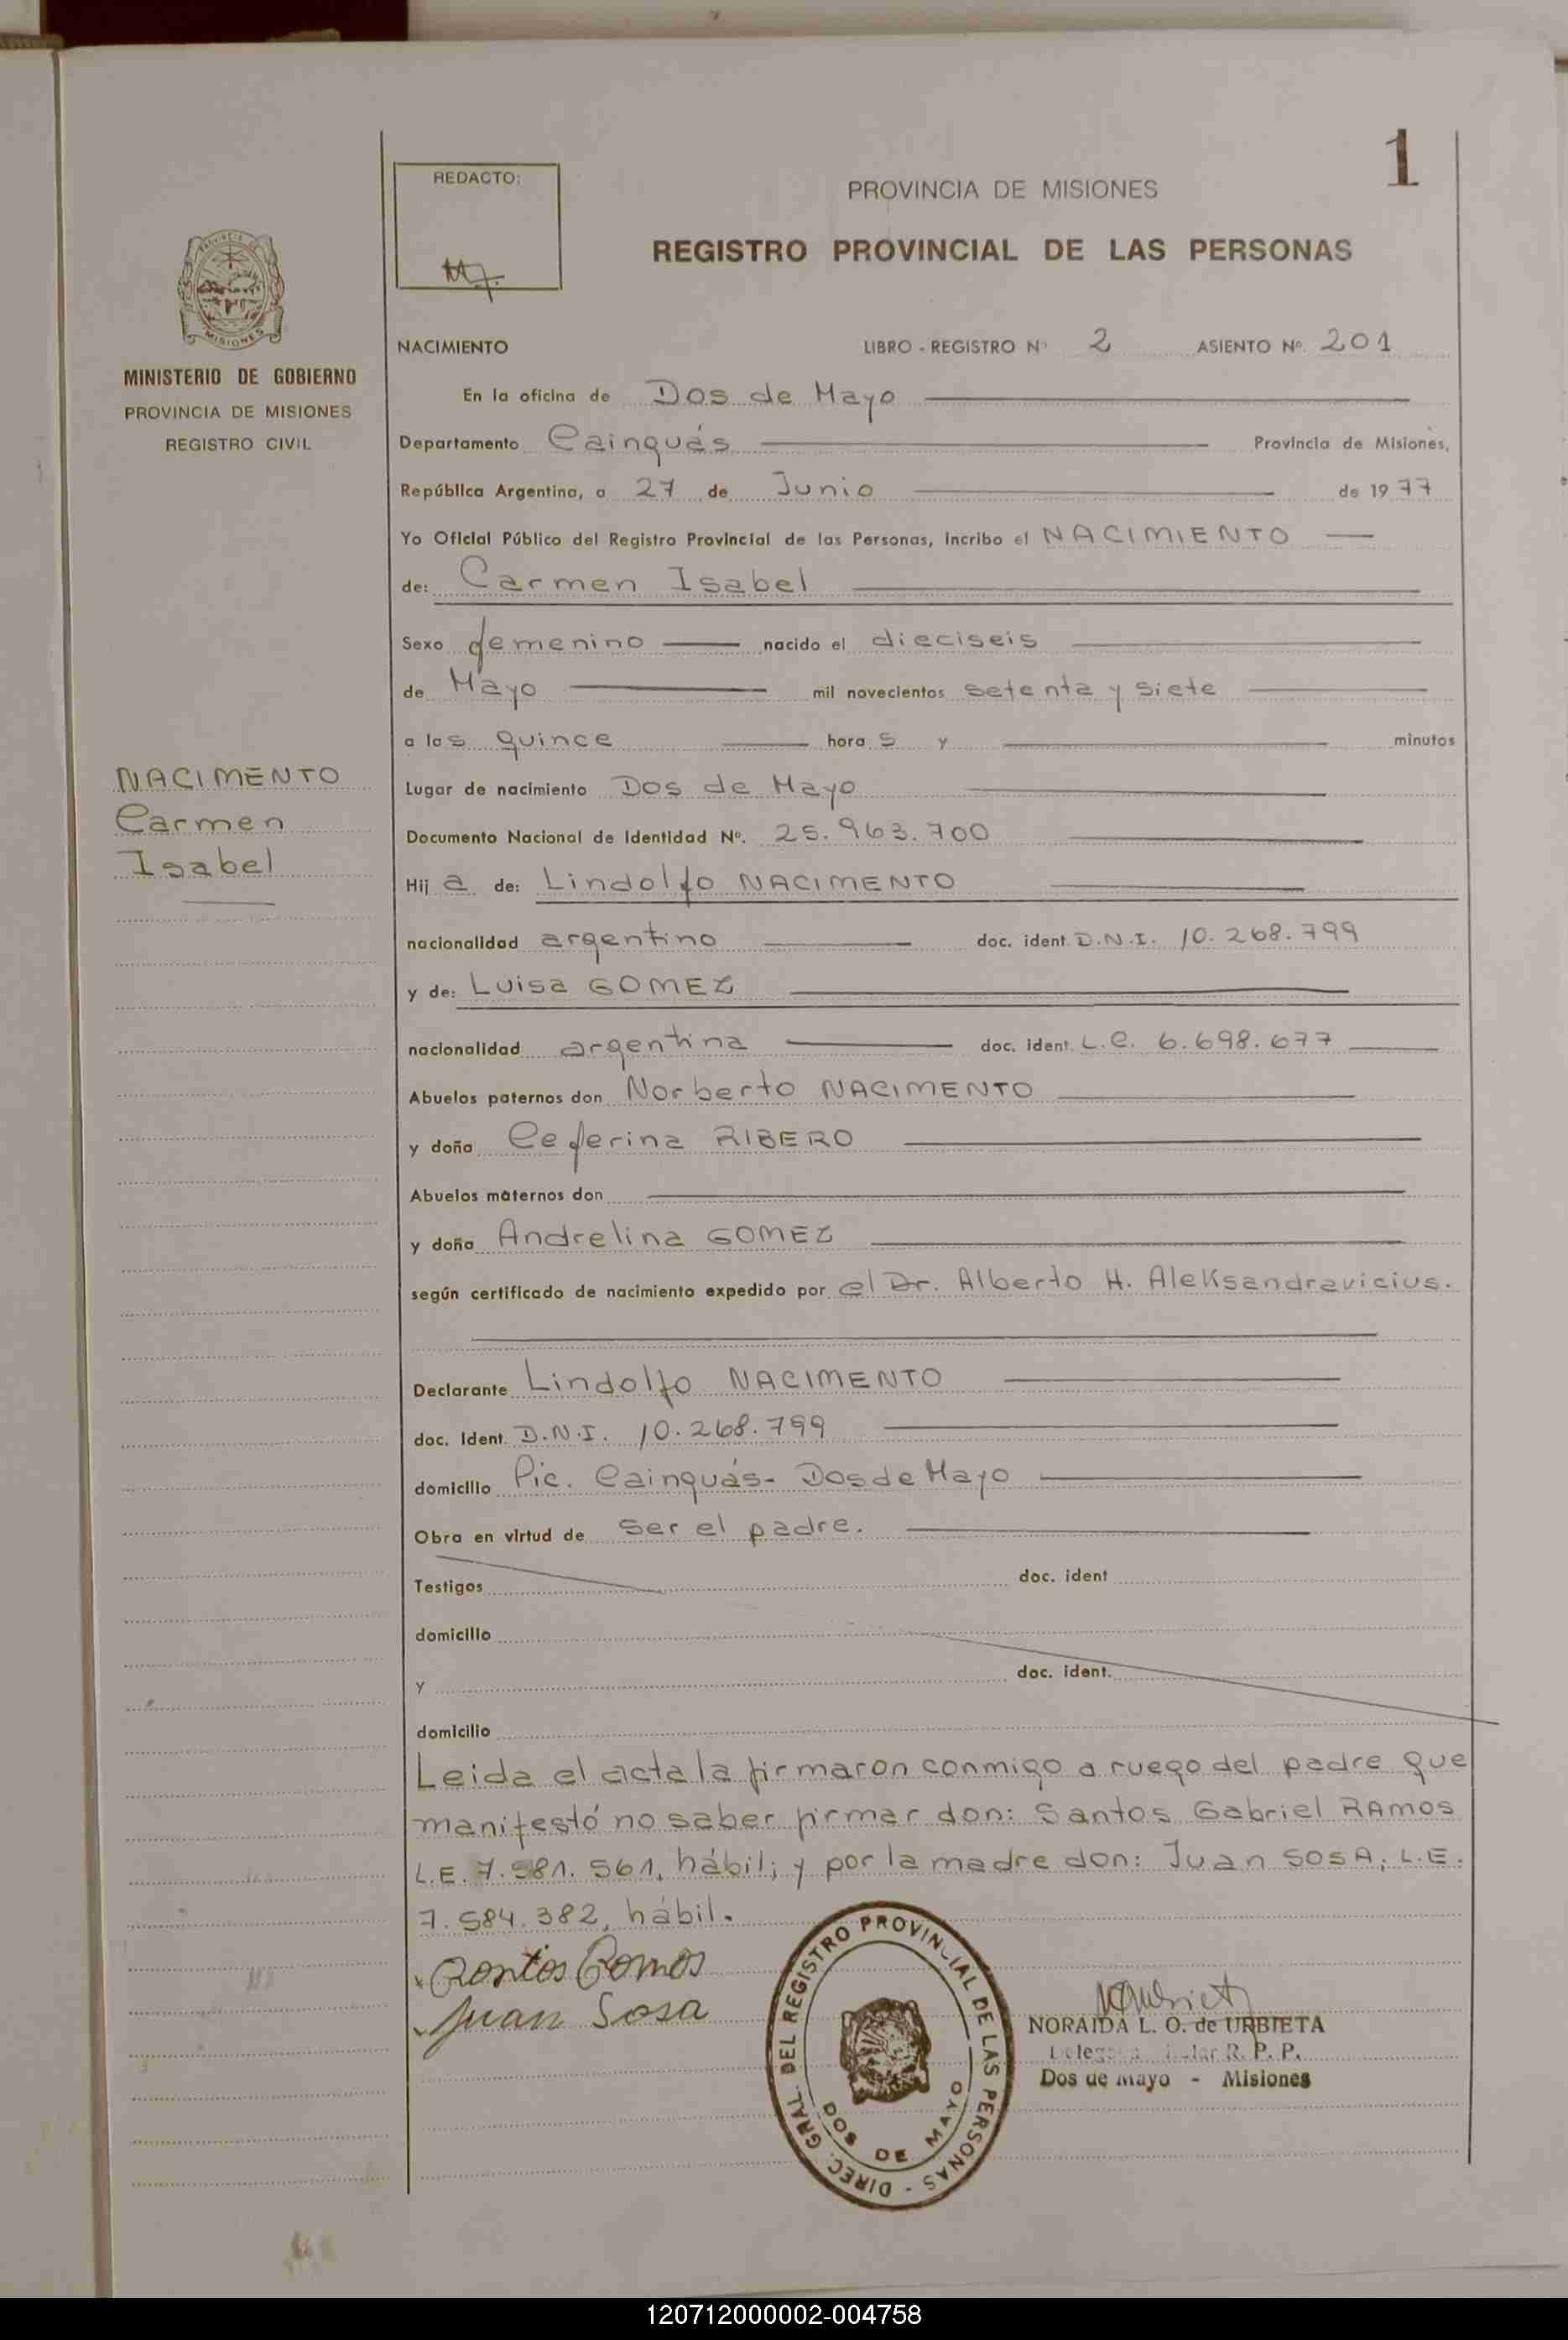 1
REDACTO:
PROVINCIA DE MISIONES
REGISTRO PROVINCIAL DE LAS PERSONAS
PROVINCIA DE
MISIONES
MINISTERIO DE GOBIERNO
PROVINCIA DE MISIONES
REGISTRO CIVIL
NACIMIENTO LIBRO - REGISTRO Nº 2 ASIENTO Nº. 201
En la oficina de Dos de Mayo
Departamento Cainguás Provincia de Misiones,
República Argentina, a 27 de Junio de 1977
Yo Oficial Público del Registro Provincial de las Personas, incribo el NACIMIENTO
de: Carmen Isabel
Sexo femenino nacido el dieciseis
de Mayo mil novecientos setenta y siete
a las quince horas y minutos
NACIMENTO
Carmen
Isabel
Lugar de nacimiento Dos de Mayo
Documento Nacional de Identidad Nº. 25.963.700
Hija de: Lindolfo NACIMENTO
nacionalidad argentino doc. ident. D.N.I. 10.268.799
y de: Luisa GOMEZ
nacionalidad argentina doc. ident. L.C. 6.698.677
Abuelos paternos don Norberto NACIMENTO
y doña Ceferina RIBERO
Abuelos maternos don
y doña Andrelina GOMEZ
según certificado de nacimiento expedido por el Dr. Alberto H. Aleksandravicius.
Declarante Lindolfo NACIMENTO
doc. Ident. D.N.I. 10.268.799
domicilio Pic. Cainguás- Dos de Mayo
Obra en virtud de ser el padre.
Testigos doc. ident
domicilio
y doc. ident.
domicilio
Leida el acta la firmaron conmigo a ruego del padre que
manifestó no saber firmar don: Santos Gabriel RAMOS
L.E. 7.581.561, hábil; y por la madre don: Juan SOSA, L.E.
7.584.382, hábil.
Santos Ramos
Juan Sosa
DIREC. GRAL. DEL REGISTRO PROVINCIAL DE LAS PERSONAS -
DOS DE MAYO
NORAIDA L. O. de URBIETA
R. P. P.
Dos de Mayo - Misiones
120712000002-004758